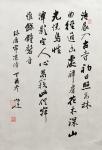 清晨入古寺初日照高林
曲徑通幽處禪房花木深山
光悅鳥性
潭影空人心萬籟此俱寂
惟餘鐘磬音